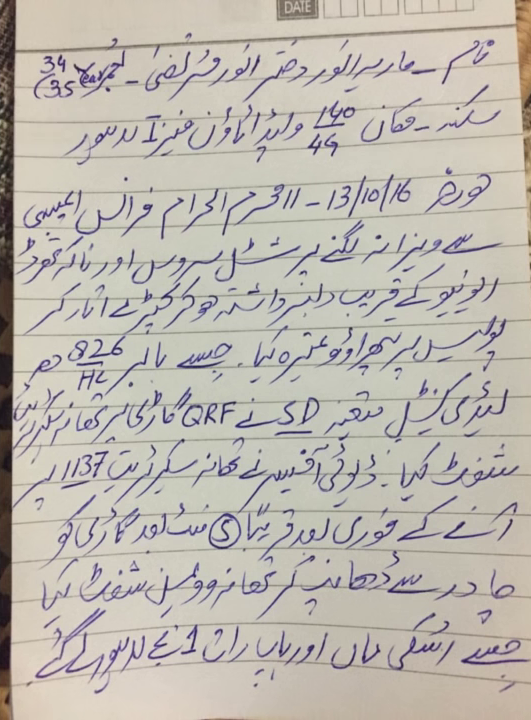 DATE
نام ـ ماریہ انور دختر انور مرتضیٰ ـ عمر 34 35 Years
سکنہ ـ مکان 140/49 واپڈا ٹاؤن فیز I لاہور
مورخہ 13/10/16 ـ 11 محرم الحرام فرانس ایمبیسی
سے ویزا نہ لگنے پر شٹل سروس اور ناکہ تھرڈ
ایونیو کے قریب دلبرداشتہ ہو کر کپڑے اتار کر
پولیس پر پتھراؤ وغیرہ کیا ـ جسے 826/HC
لیڈی کنسٹیبل متعینہ SD نے QRF گاڑی پر تھانہ سیکرٹریٹ
شفٹ کیا ـ ڈیوٹی آفیسر نے تھانہ سیکرٹریٹ 1137 پر
آنے کے فوری بعد قریباً 5 منٹ بعد گاڑی کو
چادر سے ڈھانپ کر تھانہ وومن شفٹ کیا
جسے اسکی ماں اور باپ رات 1 بجے لاہور لے گئے